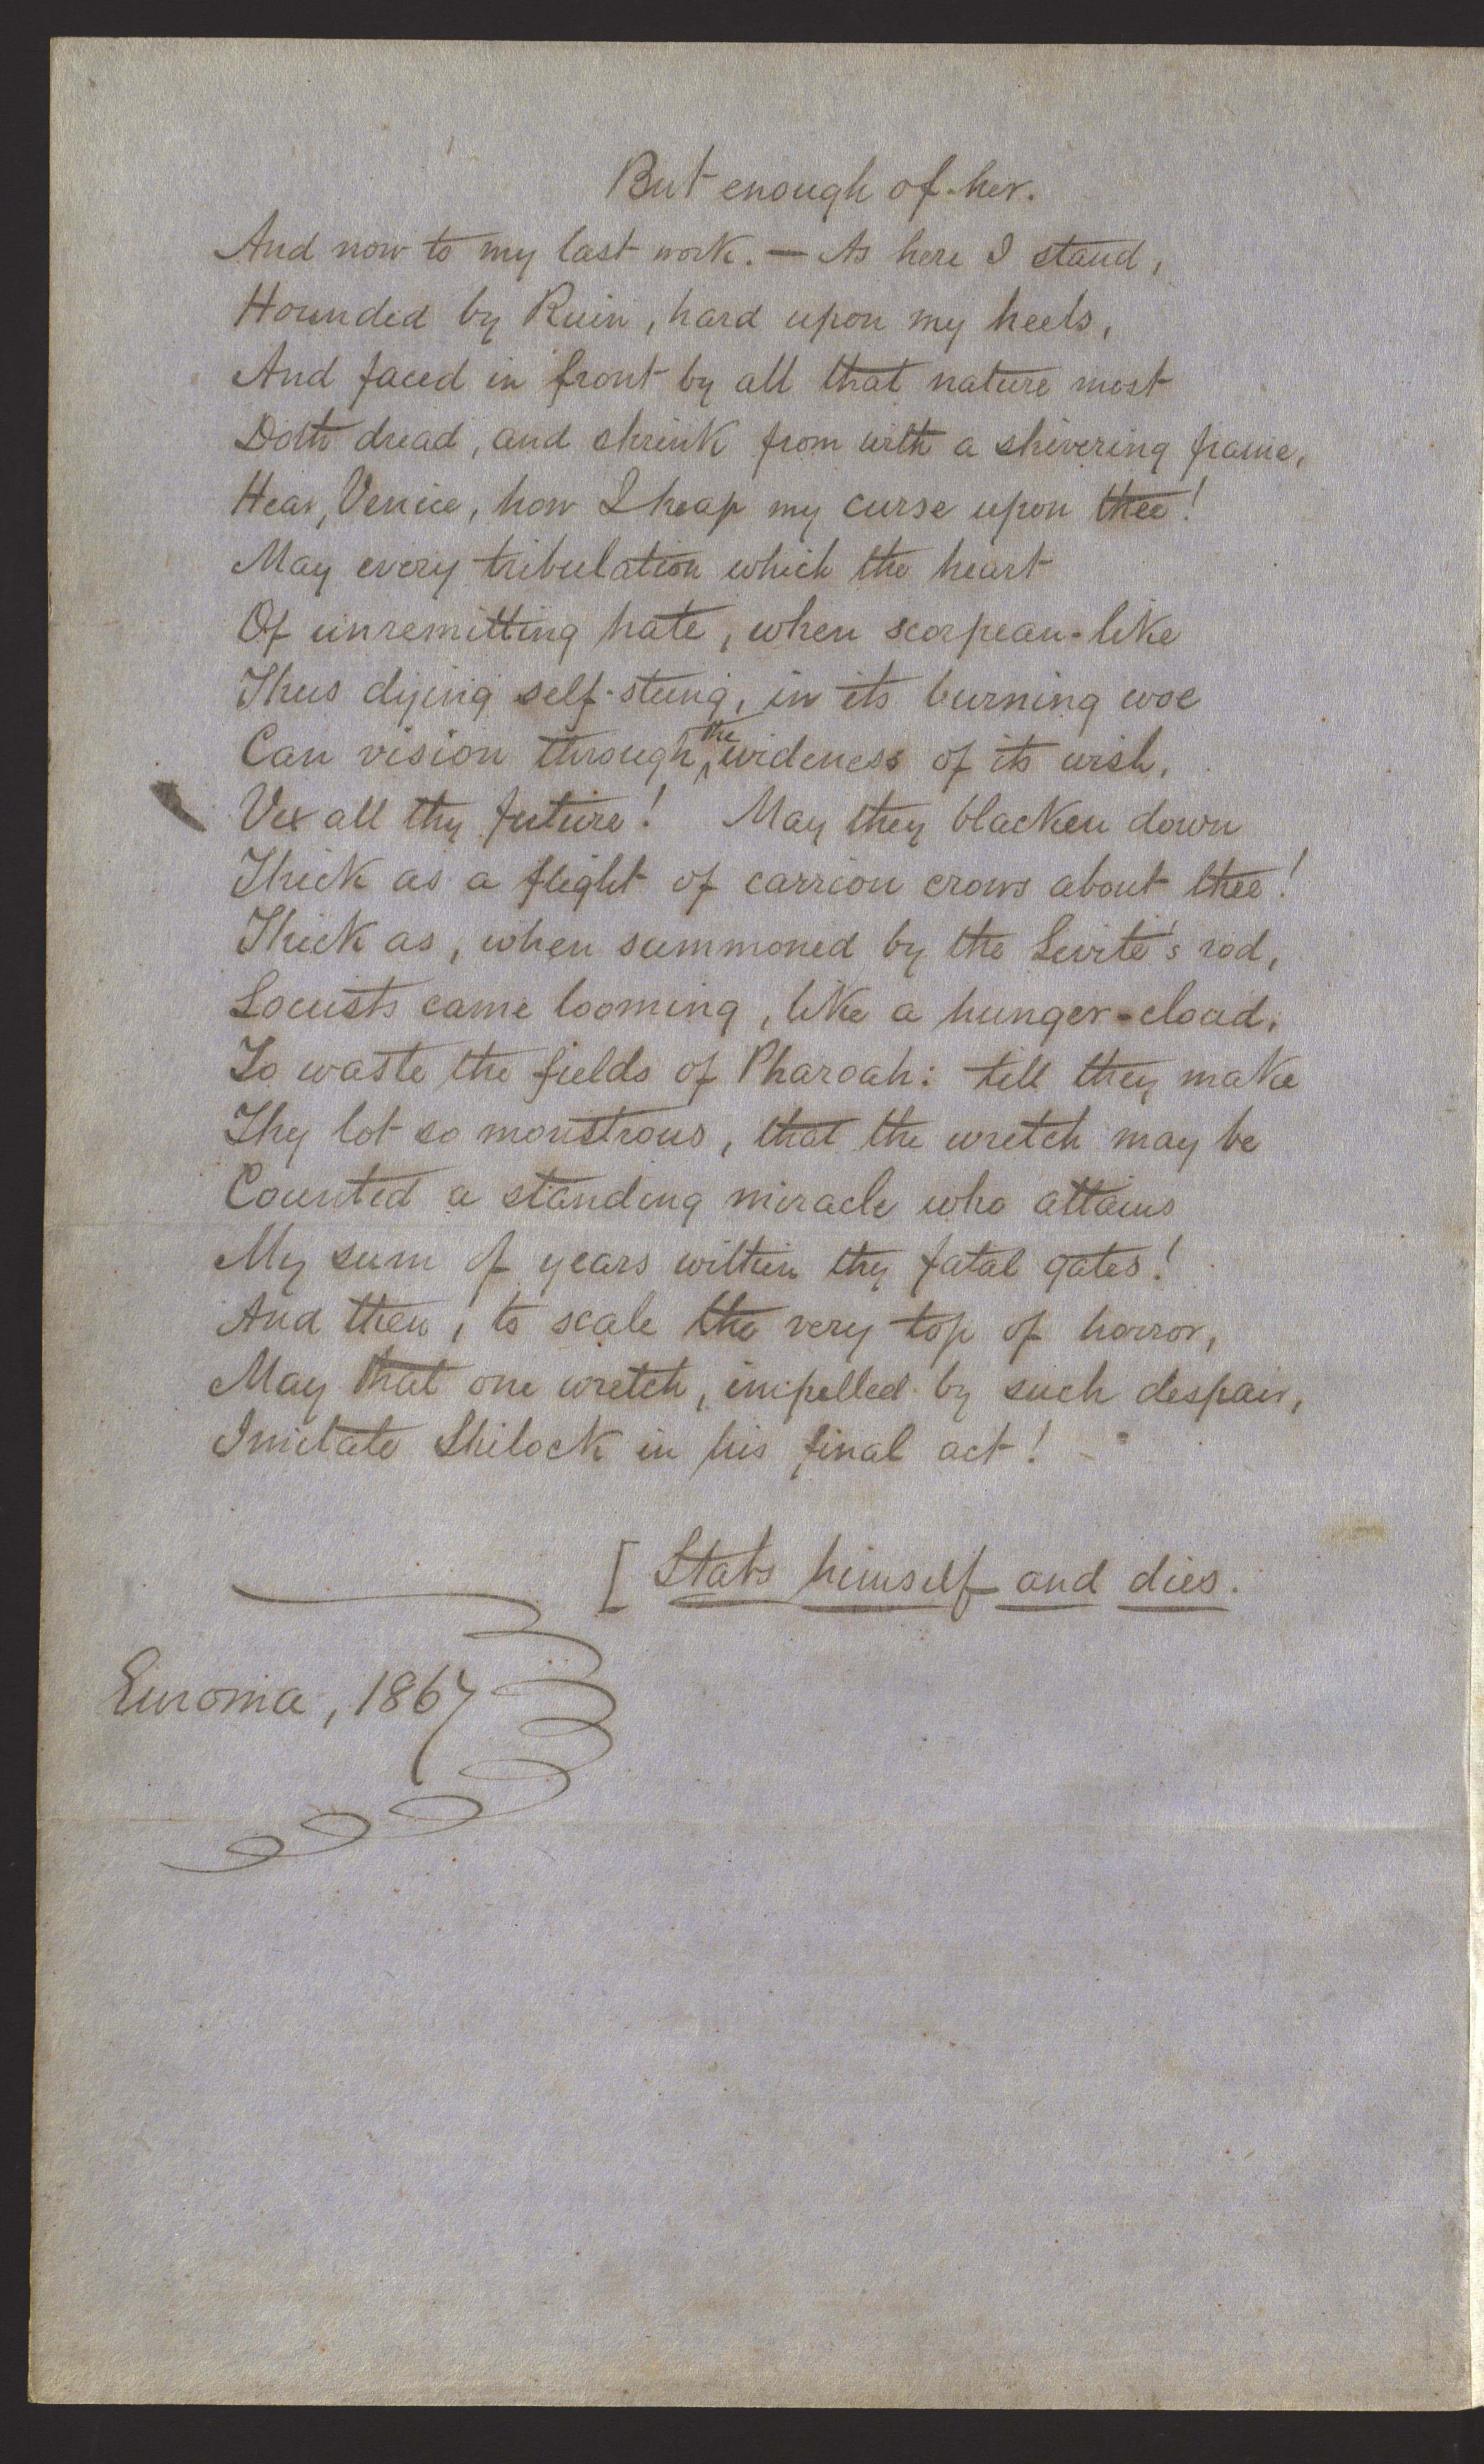 But enough of her.
And now to my last work. — As here I stand,
Hounded by Ruin, hard upon my heels,
And faced in front by all that nature most
Doth dread, and shrink from with a shivering frame,
Hear, Venice, how I heap my curse upon thee!
May every tribulation which the heart
Of unremitting hate, when scorpean-like
Thus dying self-stung, in its burning woe
Can vision through the wideness of its wish,
Vex all thy future! May they blacken down
Thick as a flight of carrion crows about thee!
Thick as, when summoned by the Levite's rod,
Locusts came looming, like a hunger-cloud,
To waste the fields of Pharoah: till they make
Thy lot so monstrous, that the wretch may be
Counted a standing miracle who attains
My sum of years within thy fatal gates!
And then, to scale the very top of horror,
May that one wretch, impelled by such despair,
Imitate Shilock in his final act!
[ Stabs himself and dies.
Euroma, 1867